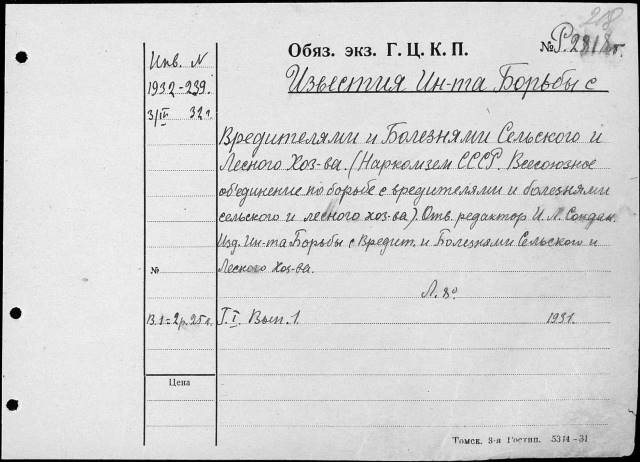 218
Обяз. экз. Г. Ц. К. П.
№ Р. 2818
Инв. N
1932-239.
3/III 32 г.
Известия Ин-та Борьбы с
Вредителями и Болезнями Сельского и
Лесного Хоз-ва. (Наркомзем СССР. Всесоюзное
объединение по борьбе с вредителями и болезнями
сельского и лесного хоз-ва). Отв. редактор И. Л.
Изд. Ин-та Борьбы с Вредит. и Болезнями Сельского и
№ Лесного Хоз-ва.
Л. 8º
В.1=2 р. 25 к. Т. I. Вып. 1. 1931.
Цена
Томск. 3-я Гостип. 5314-31